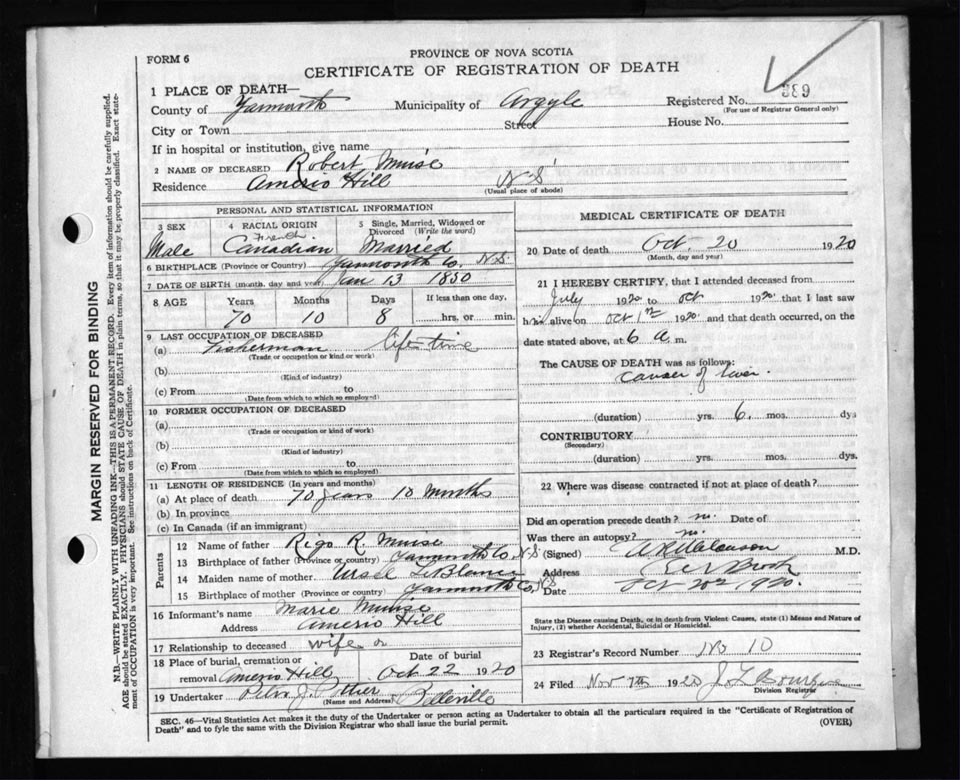 FORM 6
PROVINCE OF NOVA SCOTIA
CERTIFICATE OF REGISTRATION OF DEATH
389
1 PLACE OF DEATH—
County of Yarmouth Municipality of Argyle Registered No.
(For use of Registrar General only)
City or Town Street House No.
If in hospital or institution, give name
2 NAME OF DECEASED Robert Muise
Residence Amerio Hill N-S
(Usual place of abode)
PERSONAL AND STATISTICAL INFORMATION
3 SEX 4 RACIAL ORIGIN 5 Single, Married, Widowed or Divorced (Write the word)
Male French Canadian Married
6 BIRTHPLACE (Province or Country) Yarmouth Co. N.S.
7 DATE OF BIRTH (month, day and year) Jan 13 1850
8 AGE Years Months Days If less than one day,
70 10 8 hrs. or min.
9 LAST OCCUPATION OF DECEASED
(a) Fisherman life time
(Trade or occupation or kind of work)
(b)
(Kind of industry)
(c) From to
(Date from which to which so employed)
10 FORMER OCCUPATION OF DECEASED
(a)
(Trade or occupation or kind of work)
(b)
(Kind of industry)
(c) From to
(Date from which to which so employed)
11 LENGTH OF RESIDENCE (In years and months)
(a) At place of death 70 years 10 Months
(b) In province
(c) In Canada (if an immigrant)
Parents
12 Name of father R. Muise
13 Birthplace of father (Province or country) Yarmouth Co. N-S.
14 Maiden name of mother LeBlanc
15 Birthplace of mother (Province or country) Yarmouth Co, N-S
16 Informant's name Marie Muise
Address Amerio Hill
17 Relationship to deceased wife
18 Place of burial, cremation or removal Amerio Hill Date of burial Oct 22 1920
19 Undertaker J. Pottier Belleville
(Name and Address)
MEDICAL CERTIFICATE OF DEATH
20 Date of death Oct. 20 1920
(Month, day and year)
21 I HEREBY CERTIFY, that I attended deceased from
July 1920 to Oct 1920 that I last saw
him alive on Oct 1920 and that death occurred, on the
date stated above, at 6 a.m.
The CAUSE OF DEATH was as follows:
cancer of liver.
(duration) yrs. 6. mos. dys
CONTRIBUTORY
(Secondary)
(duration) yrs. mos. dys.
22 Where was disease contracted if not at place of death?
Did an operation precede death? no. Date of
Was there an autopsy? no.
(Signed) M.D.
Address Brook
Date 20 1920.
State the Disease causing Death, or in death from Violent Causes, state (1) Means and Nature of Injury, (2) whether Accidental, Suicidal or Homicidal.
23 Registrar's Record Number No 10
24 Filed Nov 7th 1920 J L Bourque
Division Registrar
SEC. 46—Vital Statistics Act makes it the duty of the Undertaker or person acting as Undertaker to obtain all the particulars required in the "Certificate of Registration of
Death" and to fyle the same with the Division Registrar who shall issue the burial permit. (OVER)
MARGIN RESERVED FOR BINDING
N.B.—WRITE PLAINLY WITH UNFADING INK—THIS IS A PERMANENT RECORD. Every item of information should be carefully supplied.
AGE should be stated EXACTLY. PHYSICIANS should STATE CAUSE OF DEATH in plain terms, so that it may be properly classified. Exact statement
of OCCUPATION is very important. See instructions on back of Certificate.